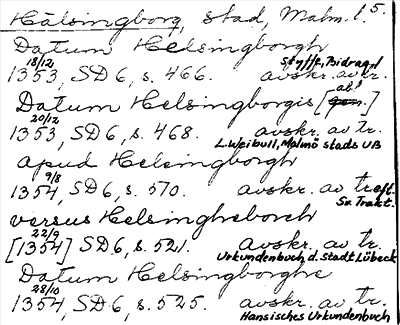 Hälsingborg, stad, Malm. l. 5.
Datum Helsingborgh
18/12 Styffe, Bidrag 1
1353, SD 6, s. 466. avskr. av tr.
Datum Helsingborgis [gen.] abl.
20/12
1353, SD 6, s. 468. avskr. av tr.
L. Weibull, Malmö stads UB
apud Helsingborgh
9/8
1354, SD 6, s. 510. avskr. av tr. eft.
Sv. Trakt.
versus Helsingheborch
22/9
[1354] SD 6, s. 521. avskr. av tr.
Urkundenbuch d. Stadt Lübeck
Datum Helsingborghe
28/10
1354, SD 6, s. 525. avskr. av tr.
Hansisches Urkundenbuch